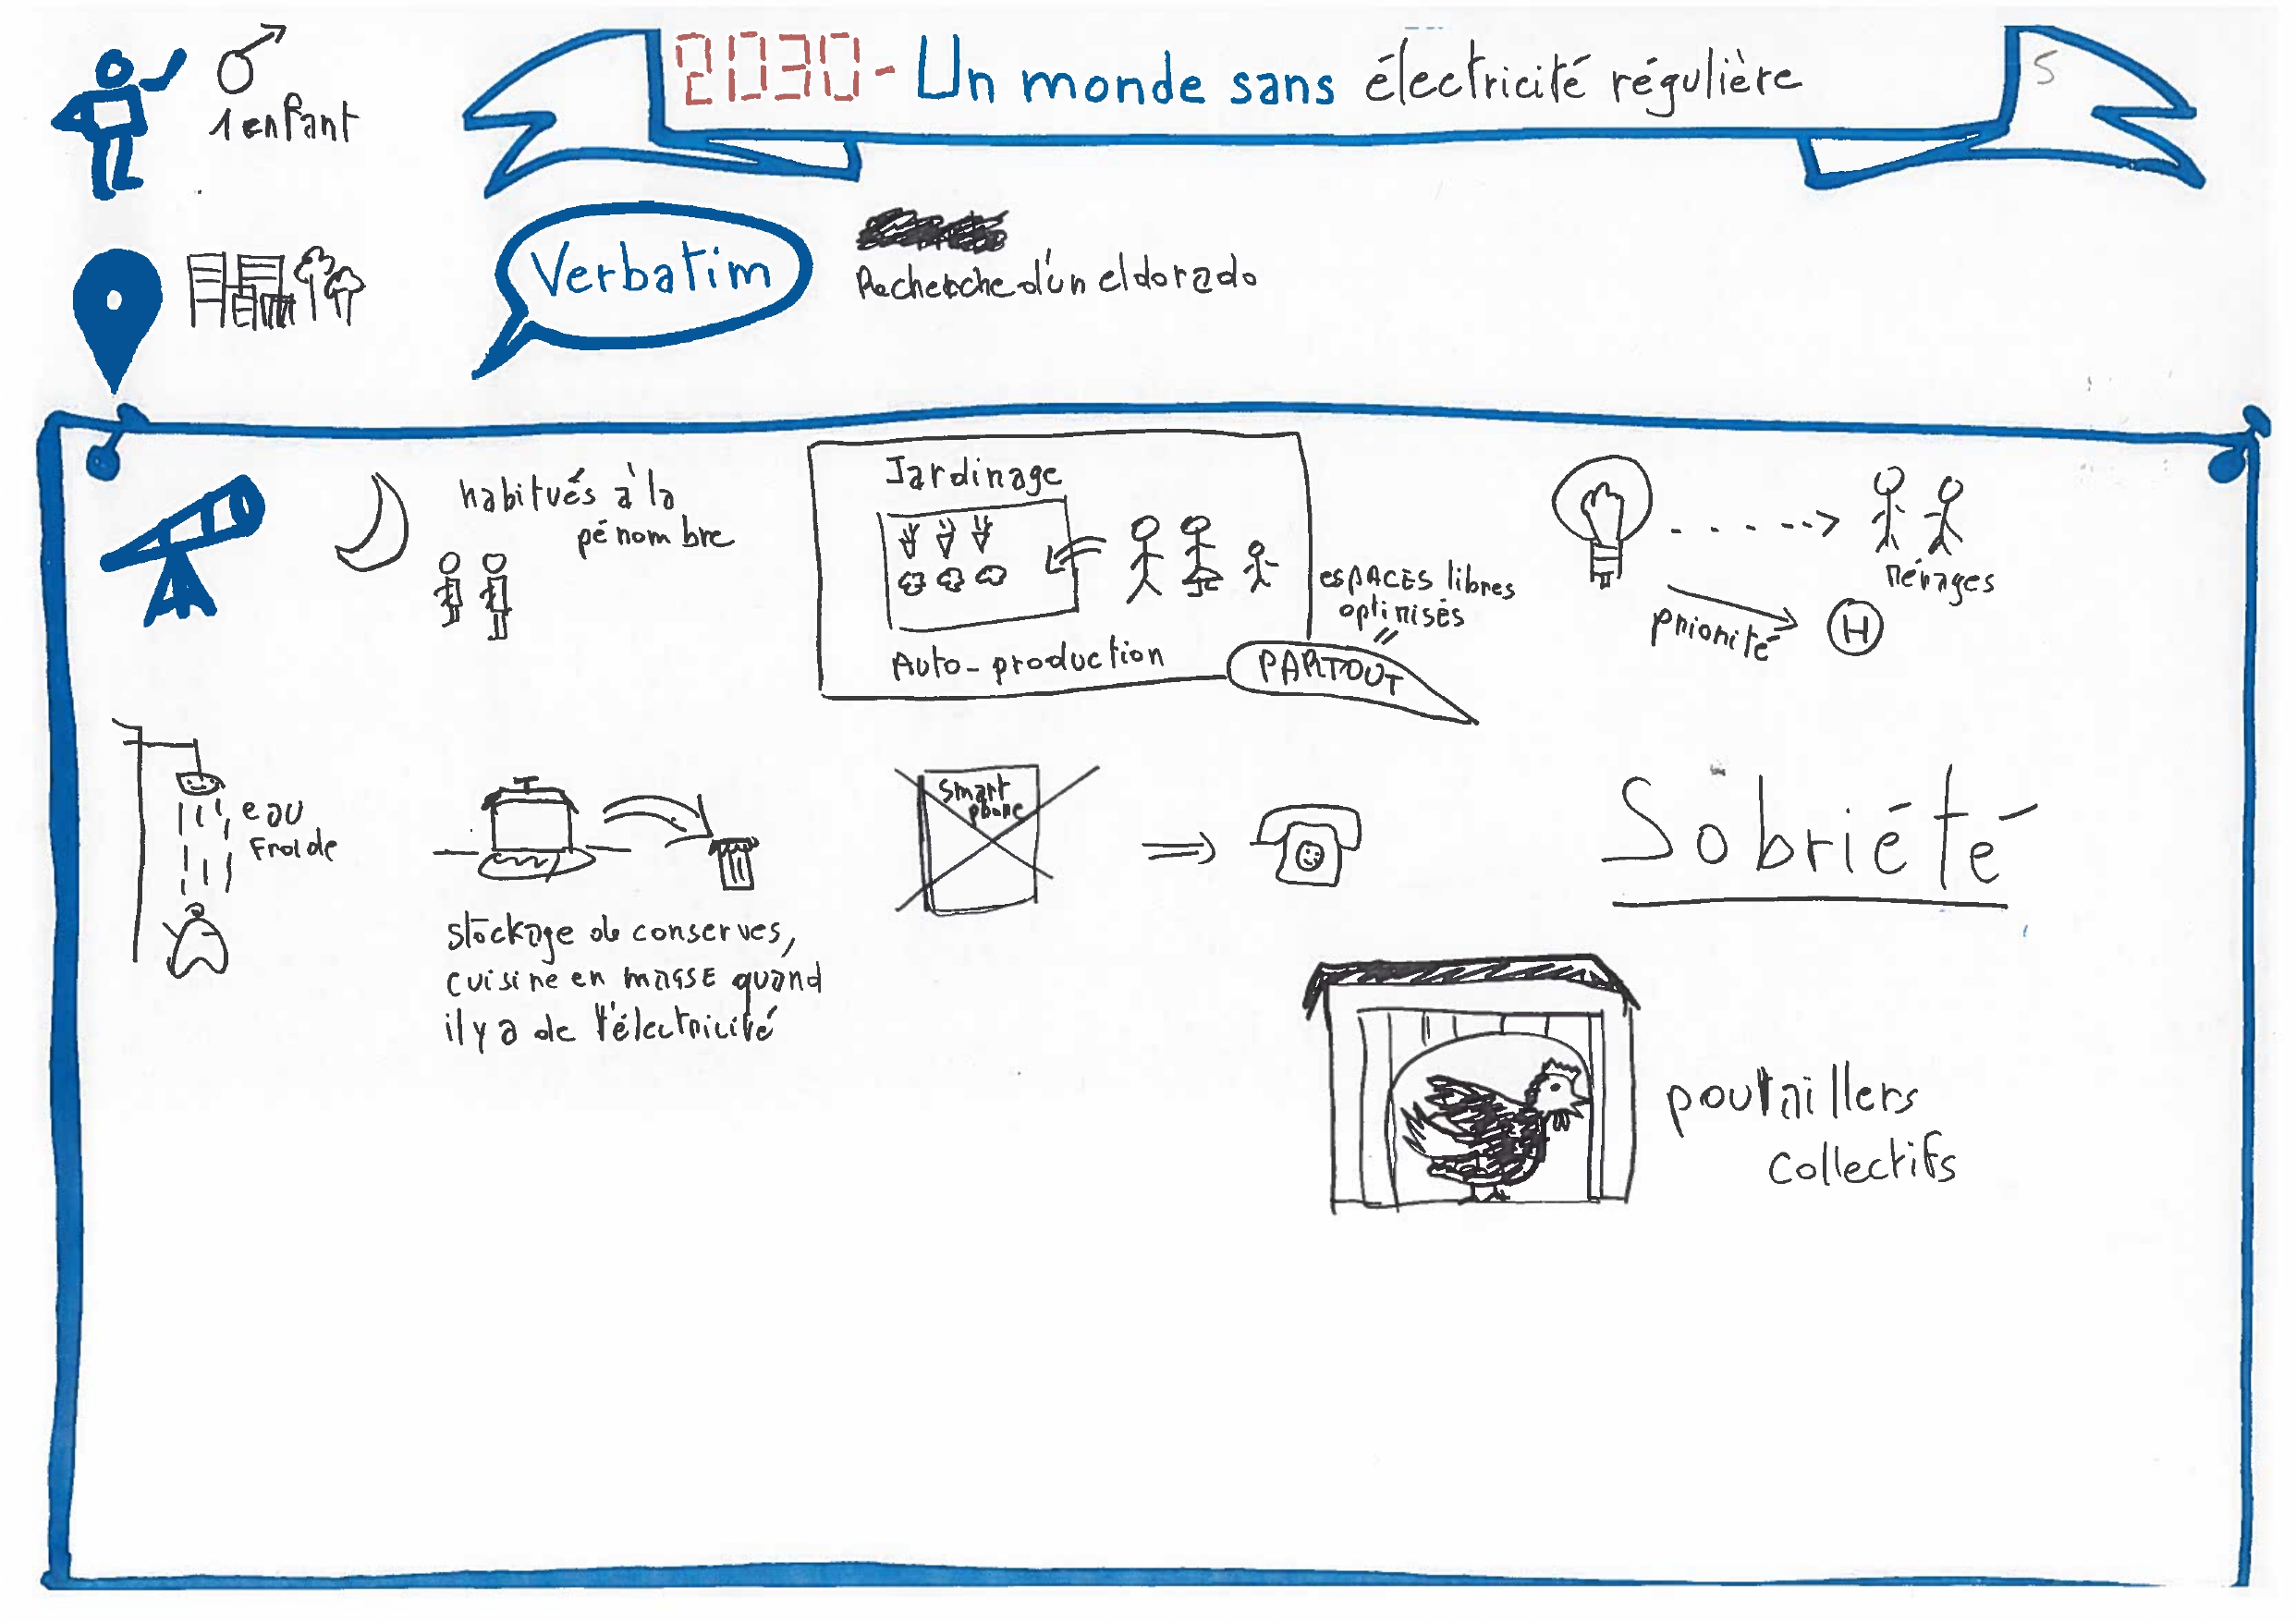 1 enfant
2030 - Un monde sans électricité régulière
5
Verbatim
Recherche d'un eldorado
habitués à la
pénombre
Jardinage
Auto-production
ESPACES libres
optimisés
PARTOUT
Ménages
priorité
H
eau
Froide
stockage de conserves,
cuisine en masse quand
il y a de l'électricité
Smart
phone
Sobriété
poulaillers
collectifs